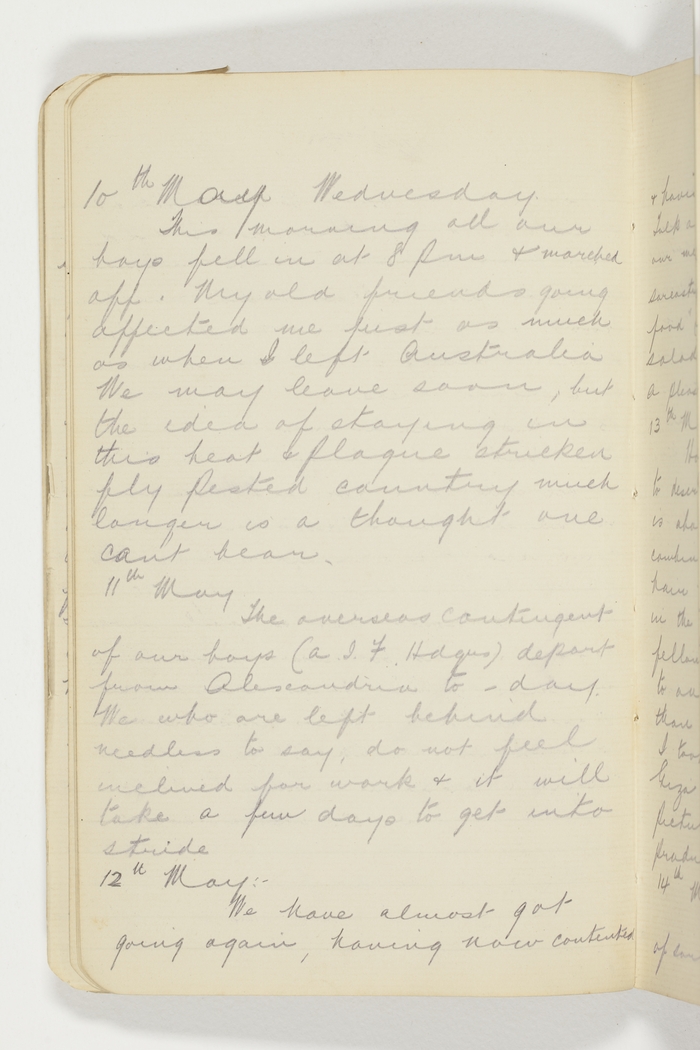 10th May Wednesday.
This morning all our
boys fell in at 8 pm & marched
off. My old friends going
affected me just as much
as when I left Australia
We may leave soon, but
the idea of staying in
this heat & plague stricken
fly pested country much
longer is a thought one
cant bear.
11th May
The overseas contingent
of our boys (A.I.F. Hdqrs) depart
from Alexandria to-day.
We who are left behind
needless to say, do not feel
inclined for work & it will
take a few days to get into
stride
12th May:-
We have almost got
going again, having now contented
& havi
Talk a
our
food
salad
a pleas
13th M
to
is
have
in the
fellow
to
than
I too
Giza
Pictu
14th M
of